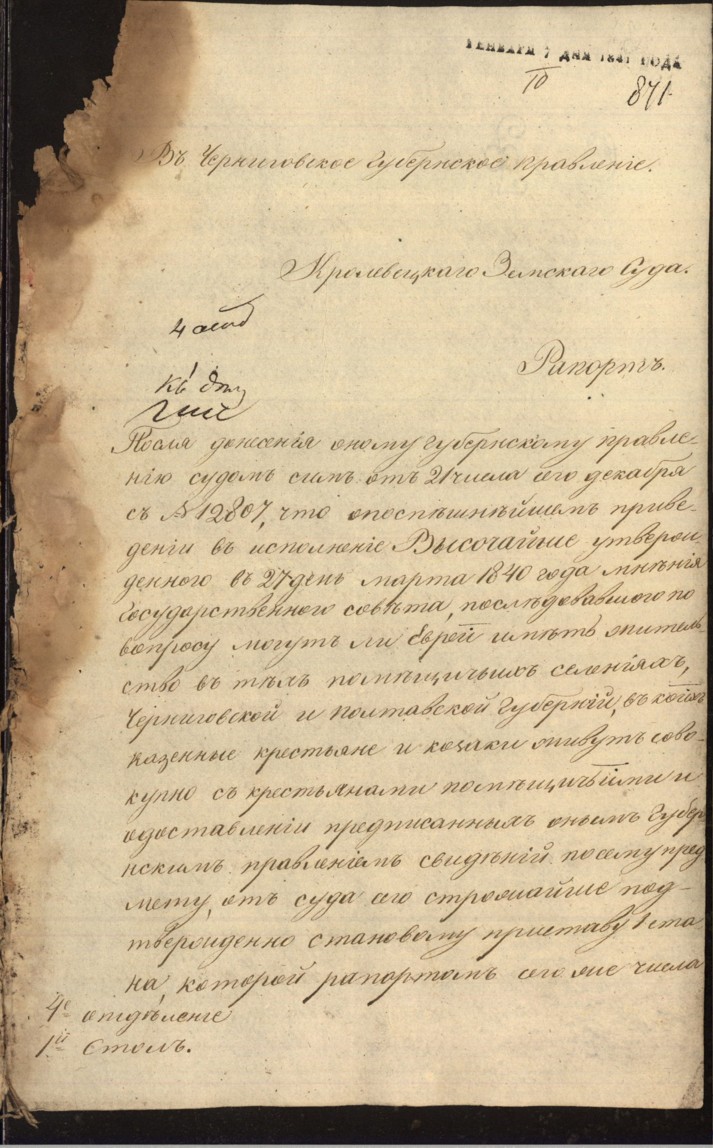 ГЕНВАРЯ 7 ДНЯ 1841 ГОДА
10
871
Въ Черниговское Губернское Правленіе.
Кролевецкаго Земскаго Суда.
Рапортъ.
Посля донесенія оному Губернскому правле-
нію судомъ симъ отъ 21 числа сего декабря
съ № 12807, что опоспѣшнѣйшемъ приве-
деніи въ исполненіе Высочайше утверж
деннаго въ 27 день марта 1840 года мнѣнія
Государственного совѣта, послѣдовавшого по
вопросу могутъ ли Евреи имѣть житель-
ство въ тѣхъ помѣщичьихъ селеніяхъ,
Черниговской и Полтавской Губерній, въ коихъ
казенные крестьяне и козаки живутъ сово-
купно съ крестьянами помѣщичьими и
одоставленіи предписанныхъ онымъ Губер-
нскимъ правленіемъ свидѣній по сему пред
мету, отъ суда сего строжайше под-
твержденно становому приставу 1 ста
на, которой рапортомъ сего же числа
4е отдѣленіе
1й Столъ.